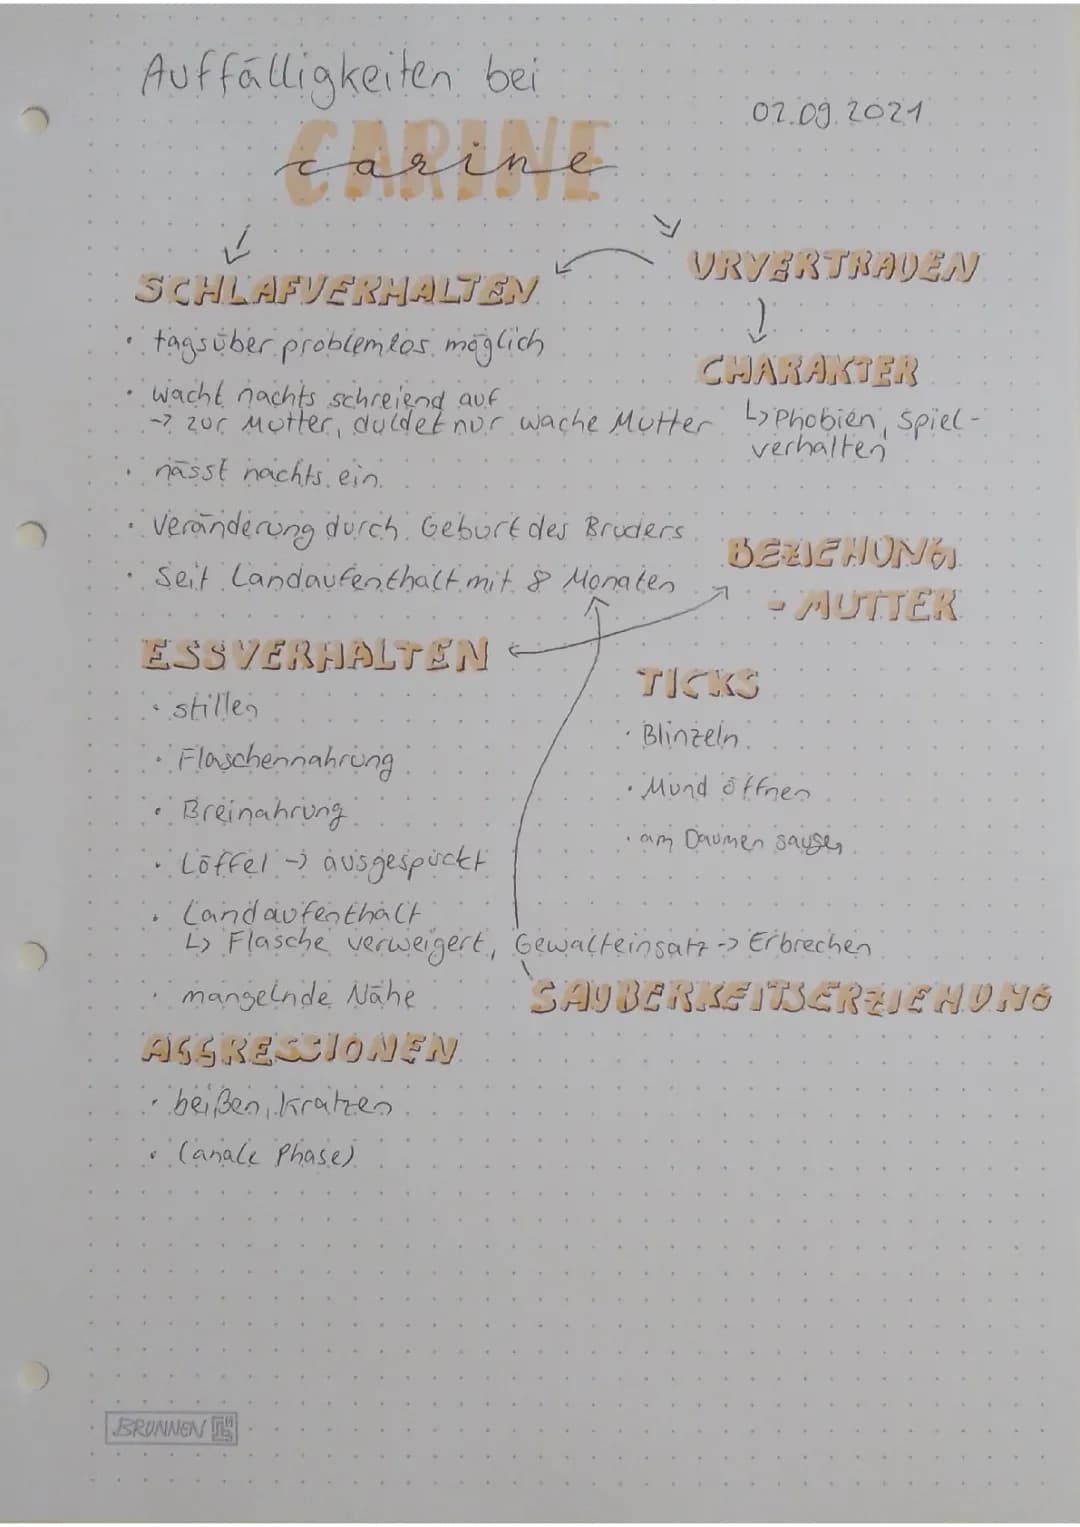 Auffälligkeiten bei
02.09.2021
CARINE
carine
SCHLAFVERHALTEN
• tagsüber problemlos möglich
• wacht nachts schreiend auf
-> zur Mutter, duldet nur wache Mutter
• nässt nachts ein
• Veränderung durch Geburt des Bruders
• Seit Landaufenthalt mit 8 Monaten
URVERTRAUEN
CHARAKTER
↳ Phobien, Spiel-
verhalten
BEZIEHUNG
- MUTTER
ESSVERHALTEN
• stillen
• Flaschennahrung
• Breinahrung
• Löffel -> ausgespuckt
• Landaufenthalt
↳ Flasche verweigert, Gewalteinsatz -> Erbrechen
• mangelnde Nähe
TICKS
• Blinzeln
• Mund öffnen
• am Daumen saugen
SAUBERKEITSERZIEHUNG
AGGRESSIONEN
• beißen, kratzen
• (anale Phase)
BRUNNEN